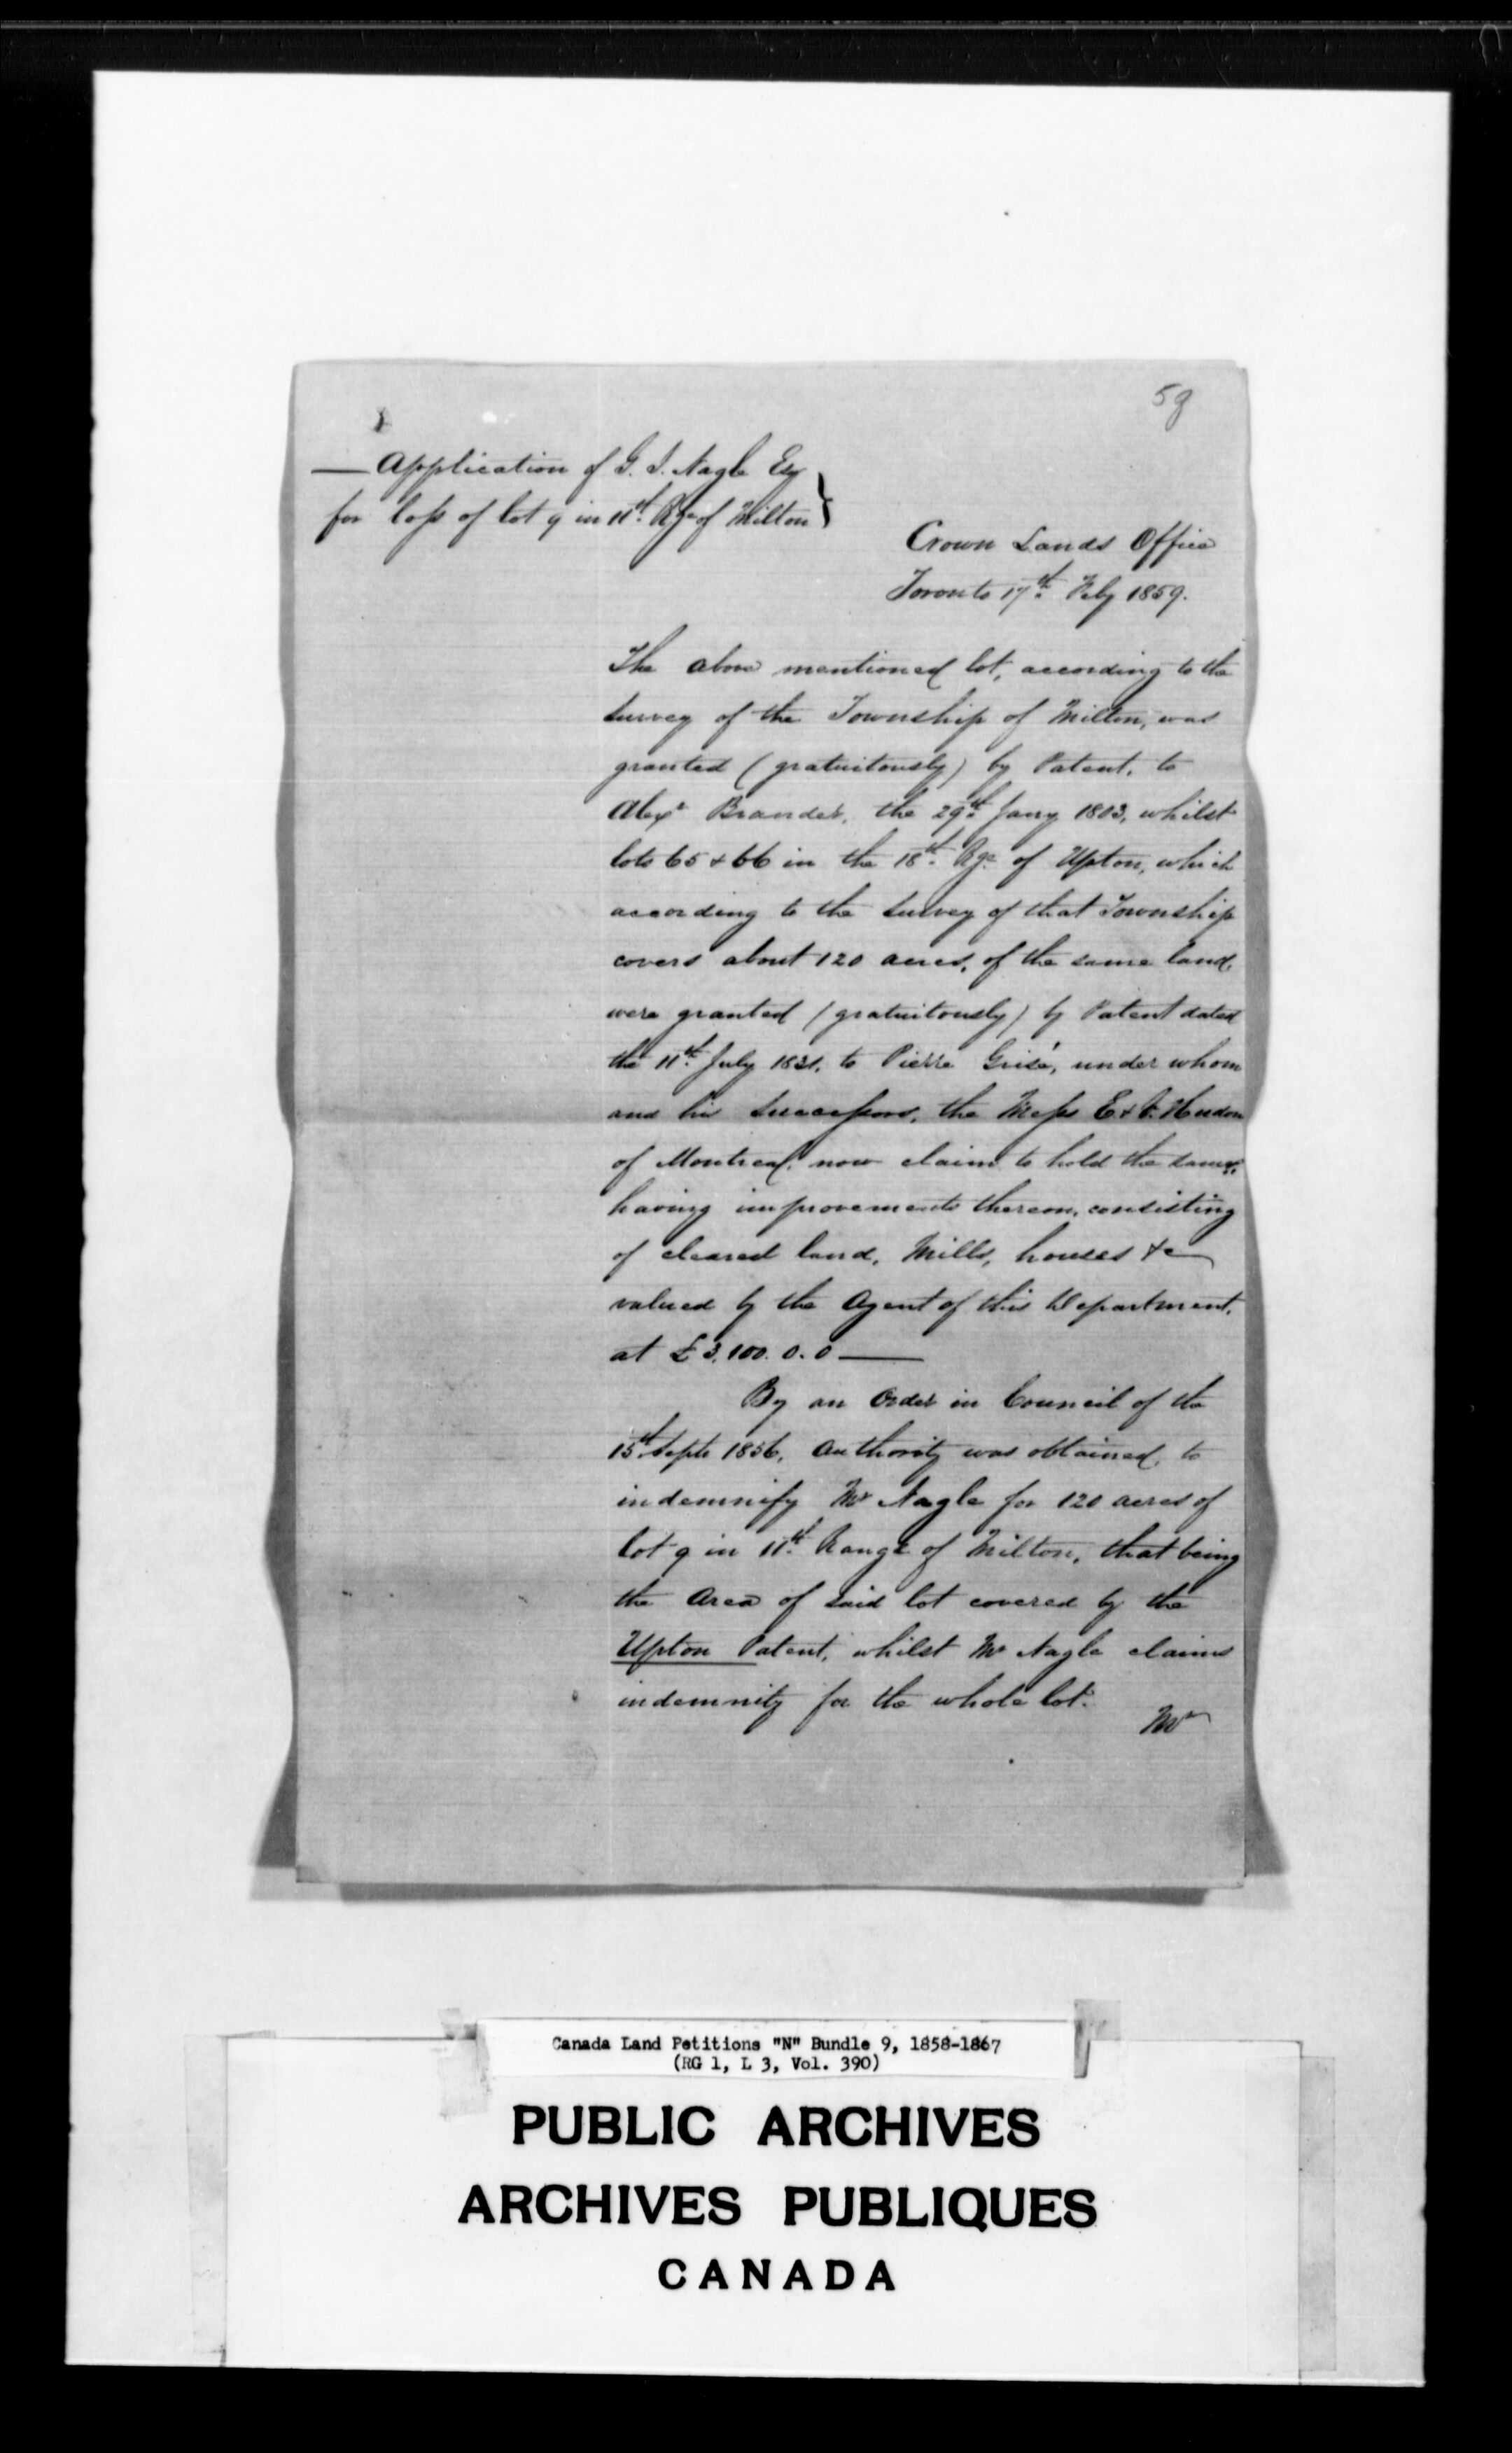 59
— Application of G. I. Nagle Esq
for loss of lot 9 in 11th Rge of Milton
Crown Lands Office
Toronto 17th Feby 1859.
The above mentioned lot, according to the
survey of the Township of Milton, was
granted (gratuitously) by Patent, to
Alexr Brander, the 29th Jany 1803, whilst
lots 65 & 66 in the 18th Rge of Upton, which
according to the survey of that Township
covers about 120 acres, of the same land,
were granted (gratuitously) by Patent dated
the 11th July 1831, to Pierre Grisé, under whom
and his successors, the Messs E & V. Hudon
of Montreal, now claim to hold the same,
having improvements thereon, consisting
of cleared land, Mills, houses &c
valued by the Agent of this Department,
at £3,100. 0. 0 —
By an Order in Council of the
15th Septr 1856, authority was obtained, to
indemnify Mr Nagle for 120 acres of
lot 9 in 11th Range of Milton, that being
the Area of said lot covered by the
Upton Patent, whilst Mr Nagle claims
indemnity for the whole lot.
Mr
Canada Land Petitions "N" Bundle 9, 1858-1867
(RG 1, L 3, Vol. 390)
PUBLIC ARCHIVES
ARCHIVES PUBLIQUES
CANADA